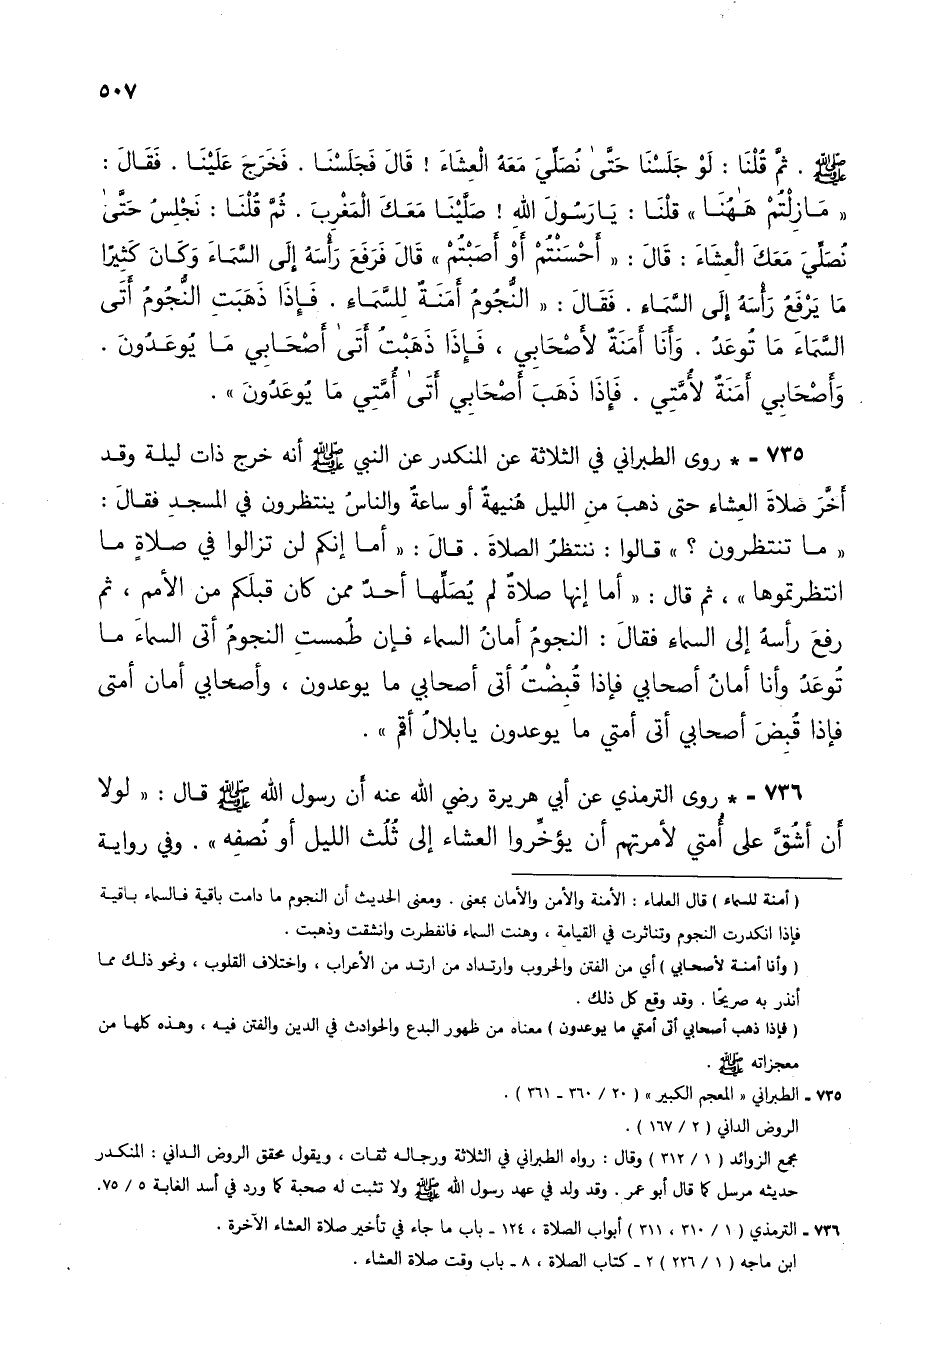 ٥٠٧
ﷺ . ثُمَّ قُلْنَا : لَوْ جَلَسْنَا حَتَّىٰ نُصَلِّيَ مَعَهُ الْعِشَاءَ ! قَالَ فَجَلَسْنَـا . فَخَرَجَ عَلَيْنَـا . فَقَـالَ :
« مَـازِلْتُمْ هٰـهُنَـا » قلْنَـا : يَـارَسُـولَ اللهِ ! صَلَّيْنَـا مَعَـكَ الْمَغْرِبَ . ثُمَّ قُلْنَـا : نَجْلِسُ حَتَّىٰ
نُصَلِّيَ مَعَكَ الْعِشَاءَ : قَالَ : « أَحْسَنْتُمْ أَوْ أَصَبْتُمْ » قَالَ فَرَفَعَ رَأْسَهُ إِلَى السَّمَاءِ وَكَـانَ كَثِيرًا
مَا يَرْفَعُ رَأْسَهُ إِلَى السَّمَاءِ . فَقَـالَ : « النُّجُومُ أَمَنَـةٌ لِلسَّمَـاءِ . فَـإِذَا ذَهَبَتِ النُّجُومُ أَتَى
السَّمَاءَ مَا تُوعَدُ . وَأَنَا أَمَنَةٌ لأَصْحَابِي ، فَـإِذَا ذَهَبْتُ أَتَىٰ أَصْحَـابِي مَـا يُوعَـدُونَ .
وَأَصْحَابِي أَمَنَةٌ لأُمَّتِي . فَإِذَا ذَهَبَ أَصْحَابِي أَتَىٰ أُمَّتِي مَا يُوعَدُونَ » .
٧٣٥ - * روى الطبراني في الثلاثة عن المنكدر عن النبي ﷺ أنه خرج ذات ليلـة وقـد
أخَّرَ صَلاةَ العِشاء حتى ذهبَ منِ الليل هُنيهةٌ أو ساعةٌ والناسُ ينتظرون في المسجـدِ فقـالَ :
« مـا تنتظرون ؟ » قـالوا : ننتظرُ الصلاةَ . قـالَ : « أمـا إنكم لن تزالوا في صـلاةٍ مـا
انتظرتموها » ، ثم قال : « أما إنها صلاةٌ لم يُصَلِّهـا أحـدٌ ممن كان قبلَكم من الأمم ، ثم
رفعَ رأسهُ إلى السماء فقالَ : النجومُ أمانُ السماء فـإن طُمستِ النجومُ أتى السماءَ مـا
تُوعَدُ وأنا أمانُ أصحابي فإذا قُبِضْتُ أتى أصحابي ما يوعدون ، وأصحابي أمان أمتى
فإذا قُبِضَ أصحابي أتى أمتي ما يوعدون يابلالُ أقم » .
٧٣٦ - * روى الترمذي عن أبي هريرة رضي الله عنه أن رسول الله ﷺ قـال : « لولا
أن أشُقَّ على أُمتي لأمرتهم أن يؤخِّروا العشاء إلى ثُلُث الليل أو نُصفِه » . وفي روايـة
( أمنة للسماء ) قال العلماء : الأمنة والأمن والأمان بمعنى . ومعنى الحديث أن النجوم ما دامت باقية فـالسماء بـاقيـة
فإذا انكدرت النجوم وتناثرت في القيامة ، وهنت السماء فانفطرت وانشقت وذهبت .
( وأنا أمنـة لأصحـابي ) أي من الفتن والحروب وارتـداد من ارتـد من الأعراب ، واختـلاف القلوب ، ونحو ذلـك ممـا
أنذر به صريحًا . وقد وقع كل ذلك .
( فإذا ذهب أصحابي أتى أمتي ما يوعدون ) معناه من ظهور البدع والحوادث في الدين والفتن فيـه ، وهـذه كلهـا من
معجزاته ﷺ .
٧٣٥ - الطبراني « المعجم الكبير » ( ٢٠ / ٣٦٠ - ٣٦١ ) .
الروض الداني ( ٢ / ١٦٧ ) .
مجمع الزوائد ( ١ / ٣١٢ ) وقال : رواه الطبراني في الثلاثة ورجالـه ثقـات ، ويقول محقق الروض الـداني : المنكـدر
حديثه مرسل كما قال أبو عمر . وقد ولد في عهد رسول الله ﷺ ولا تثبت له صحبة كما ورد في أسد الغابة ٥ / ٧٥.
٧٣٦ - الترمذي ( ١ / ٣١٠ ، ٣١١ ) أبواب الصلاة ، ١٢٤ - باب ما جاء في تأخير صلاة العشاء الآخرة .
ابن ماجه ( ١ / ٢٢٦ ) ٢ - كتاب الصلاة ، ٨ - باب وقت صلاة العشاء .